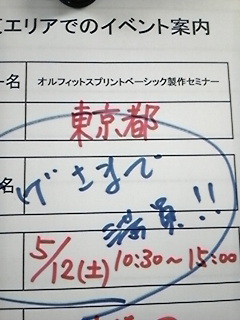 エリアでのイベント案内
ー名 オルフィットスプリントベーシック製作セミナー
東京都
名 げさまで
満員!!
5/12(土) 10:30〜15:00